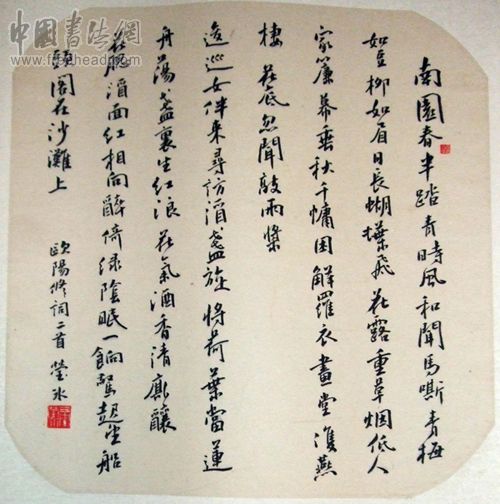 中國書法網
南園春半踏青時風和聞馬嘶青梅
如豆柳如眉日長蝴蝶飛花露重草烟低人
家簾幕垂秋千慵困解羅衣畫堂雙燕
棲花底忽聞敲兩槳
逡巡女伴來尋訪酒盞旋將荷葉當蓮
舟蕩盞裏生紅浪花氣酒香清廝釀
花腮酒面紅相向醉倚綠陰眠一餉驚起望船
頭閣在沙灘上
歐陽修詞二首瑩冰